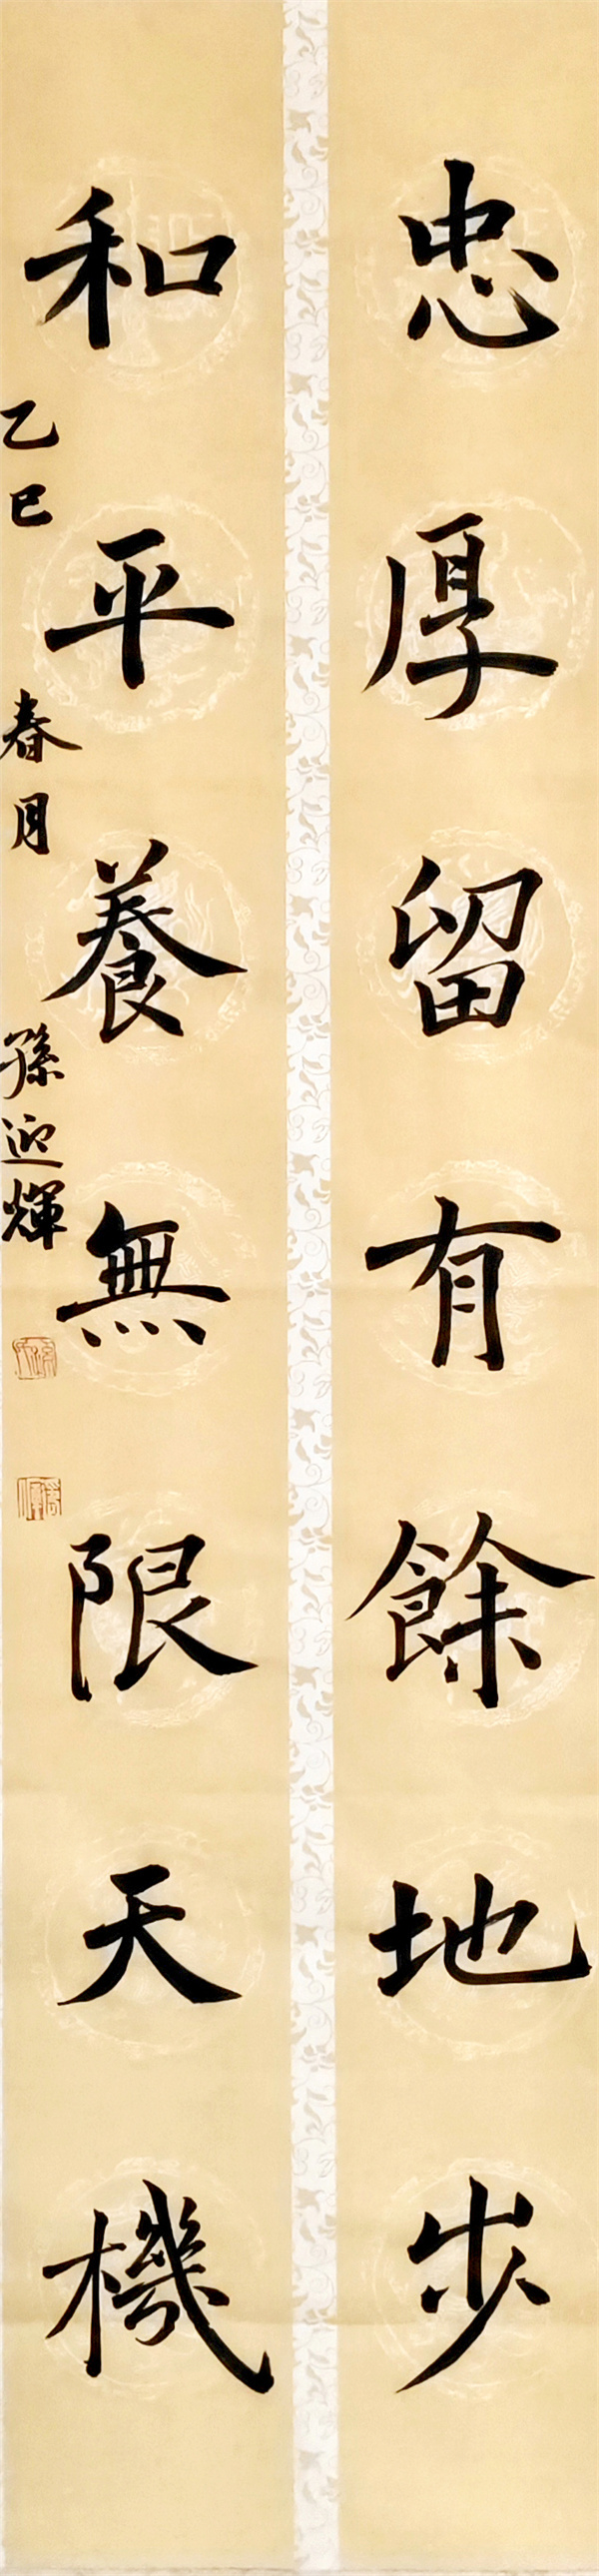 忠厚留有餘地步
和平養無限天機
乙巳春月孫迎輝